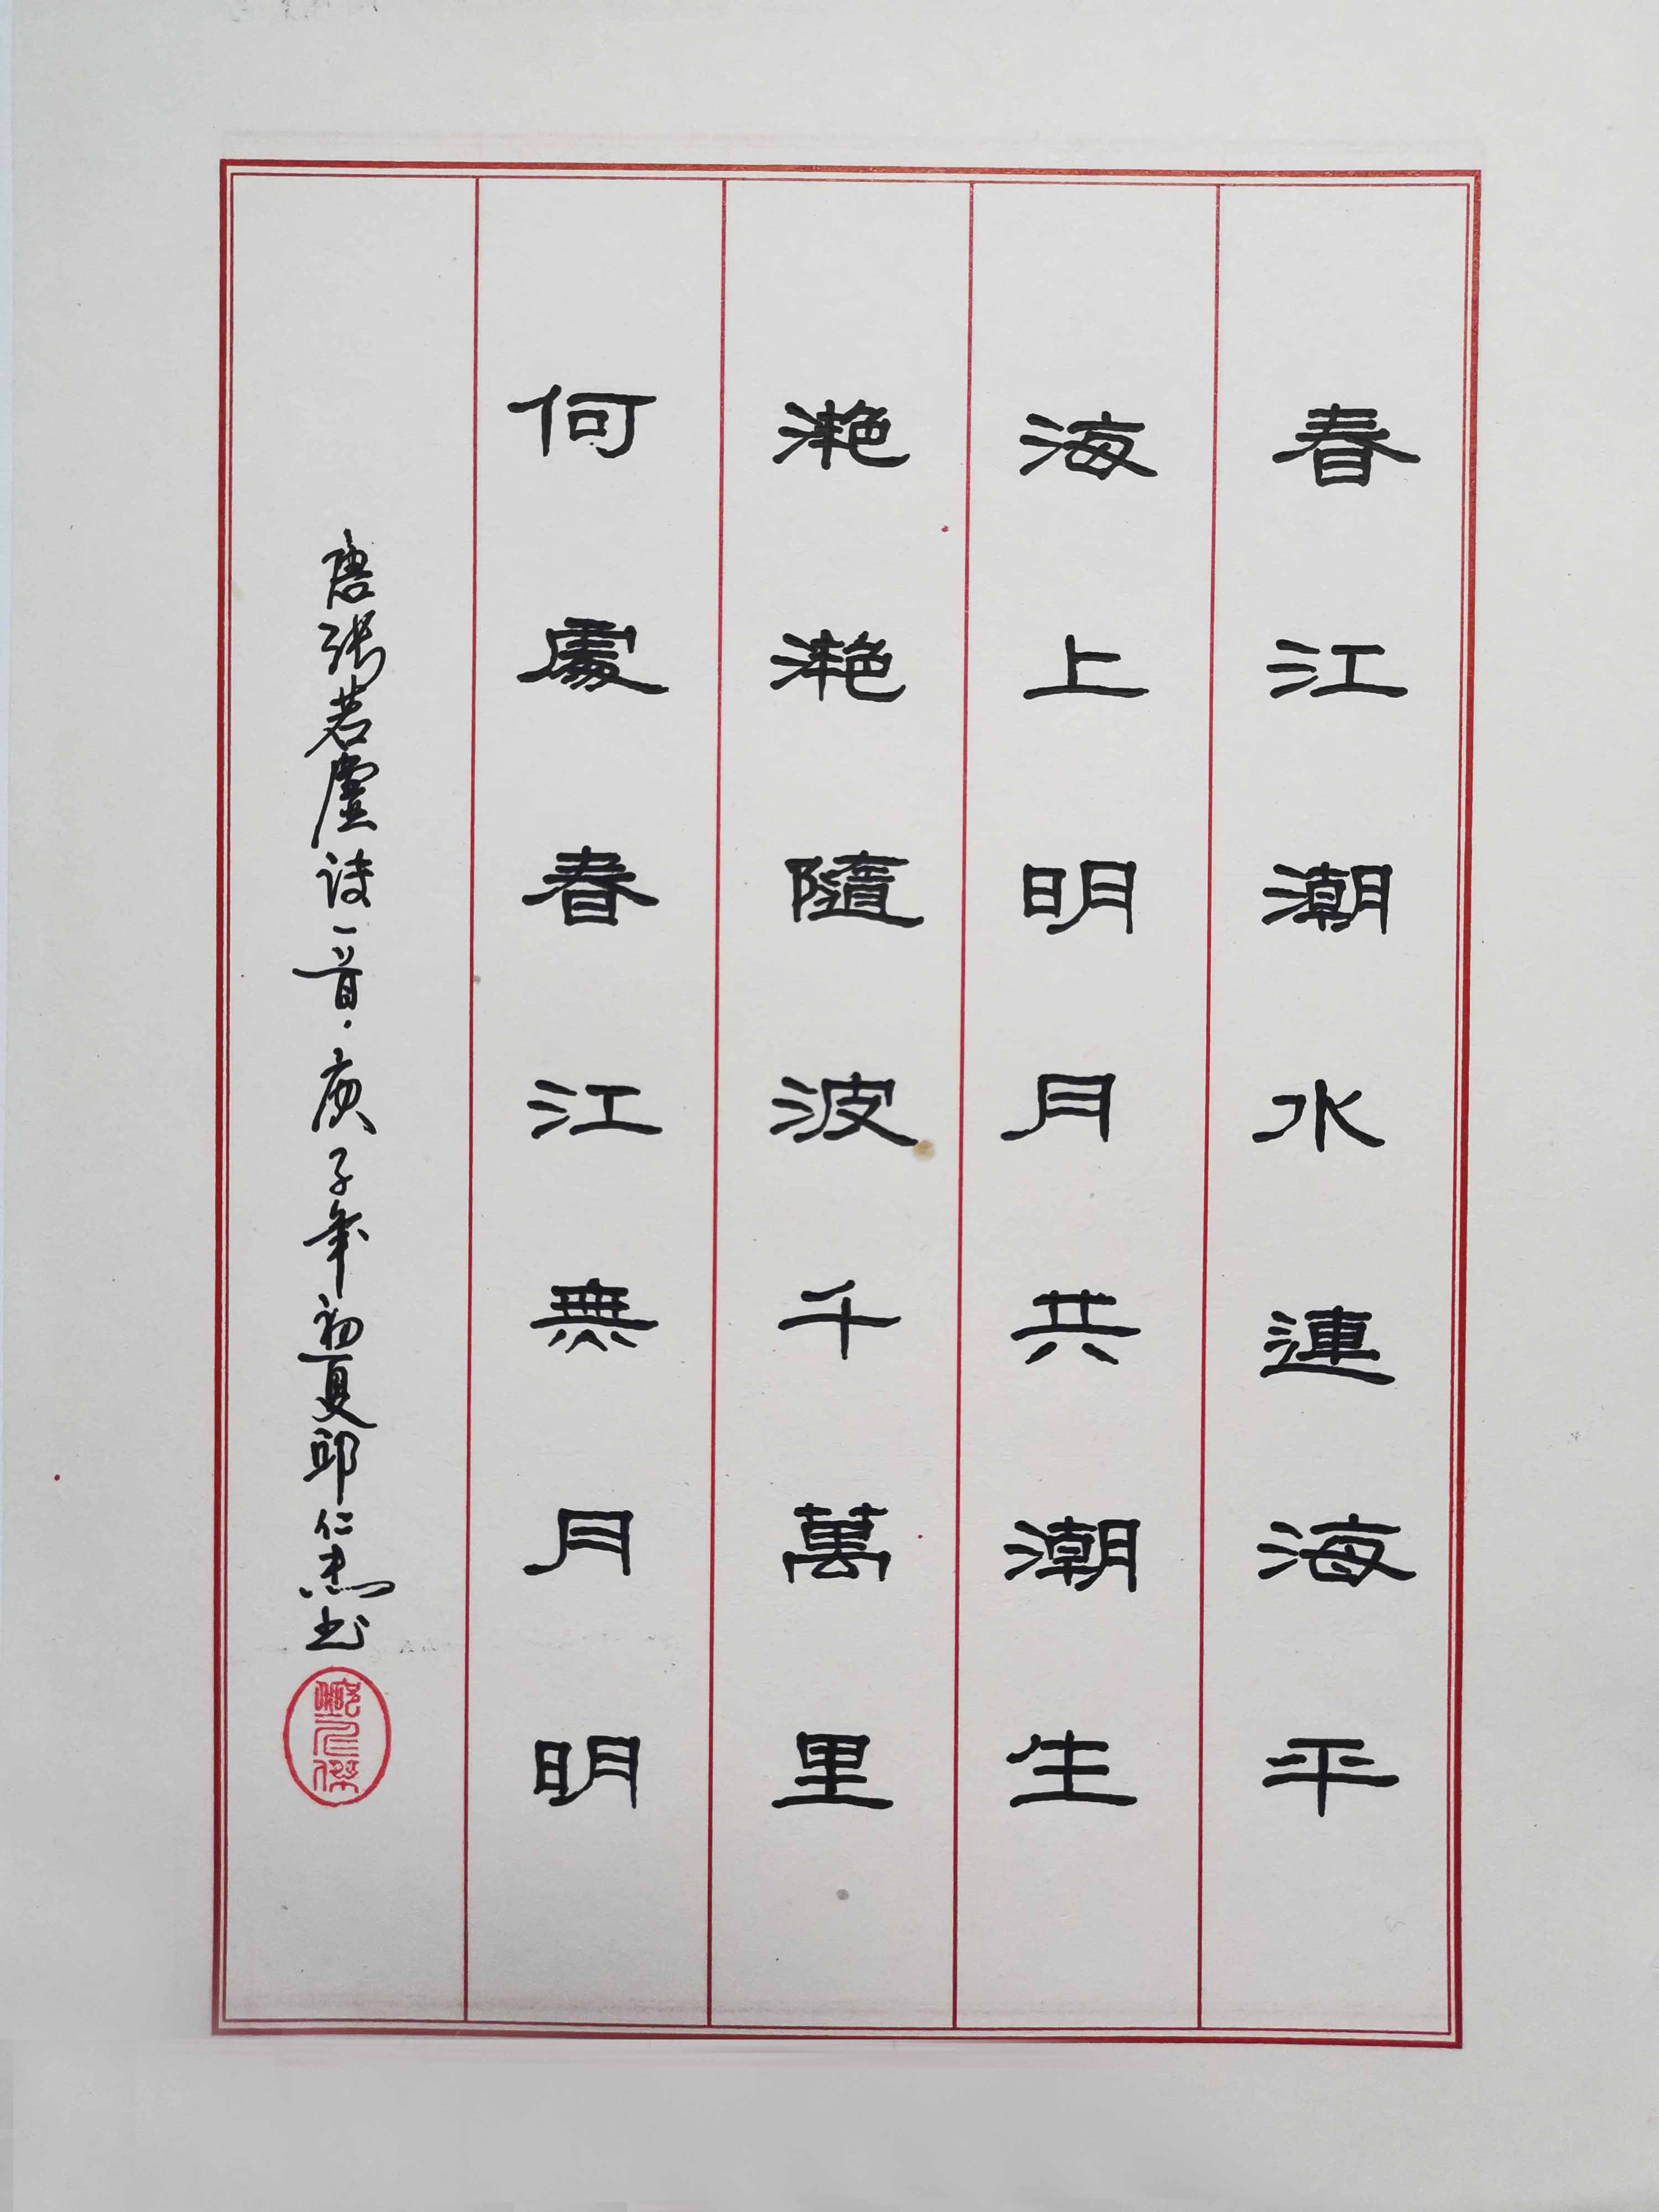 春江潮水連海平
海上明月共潮生
灔灔隨波千萬里
何處春江無月明
唐張若虛詩一首·庚子年初夏邱仁杰书
邱仁傑